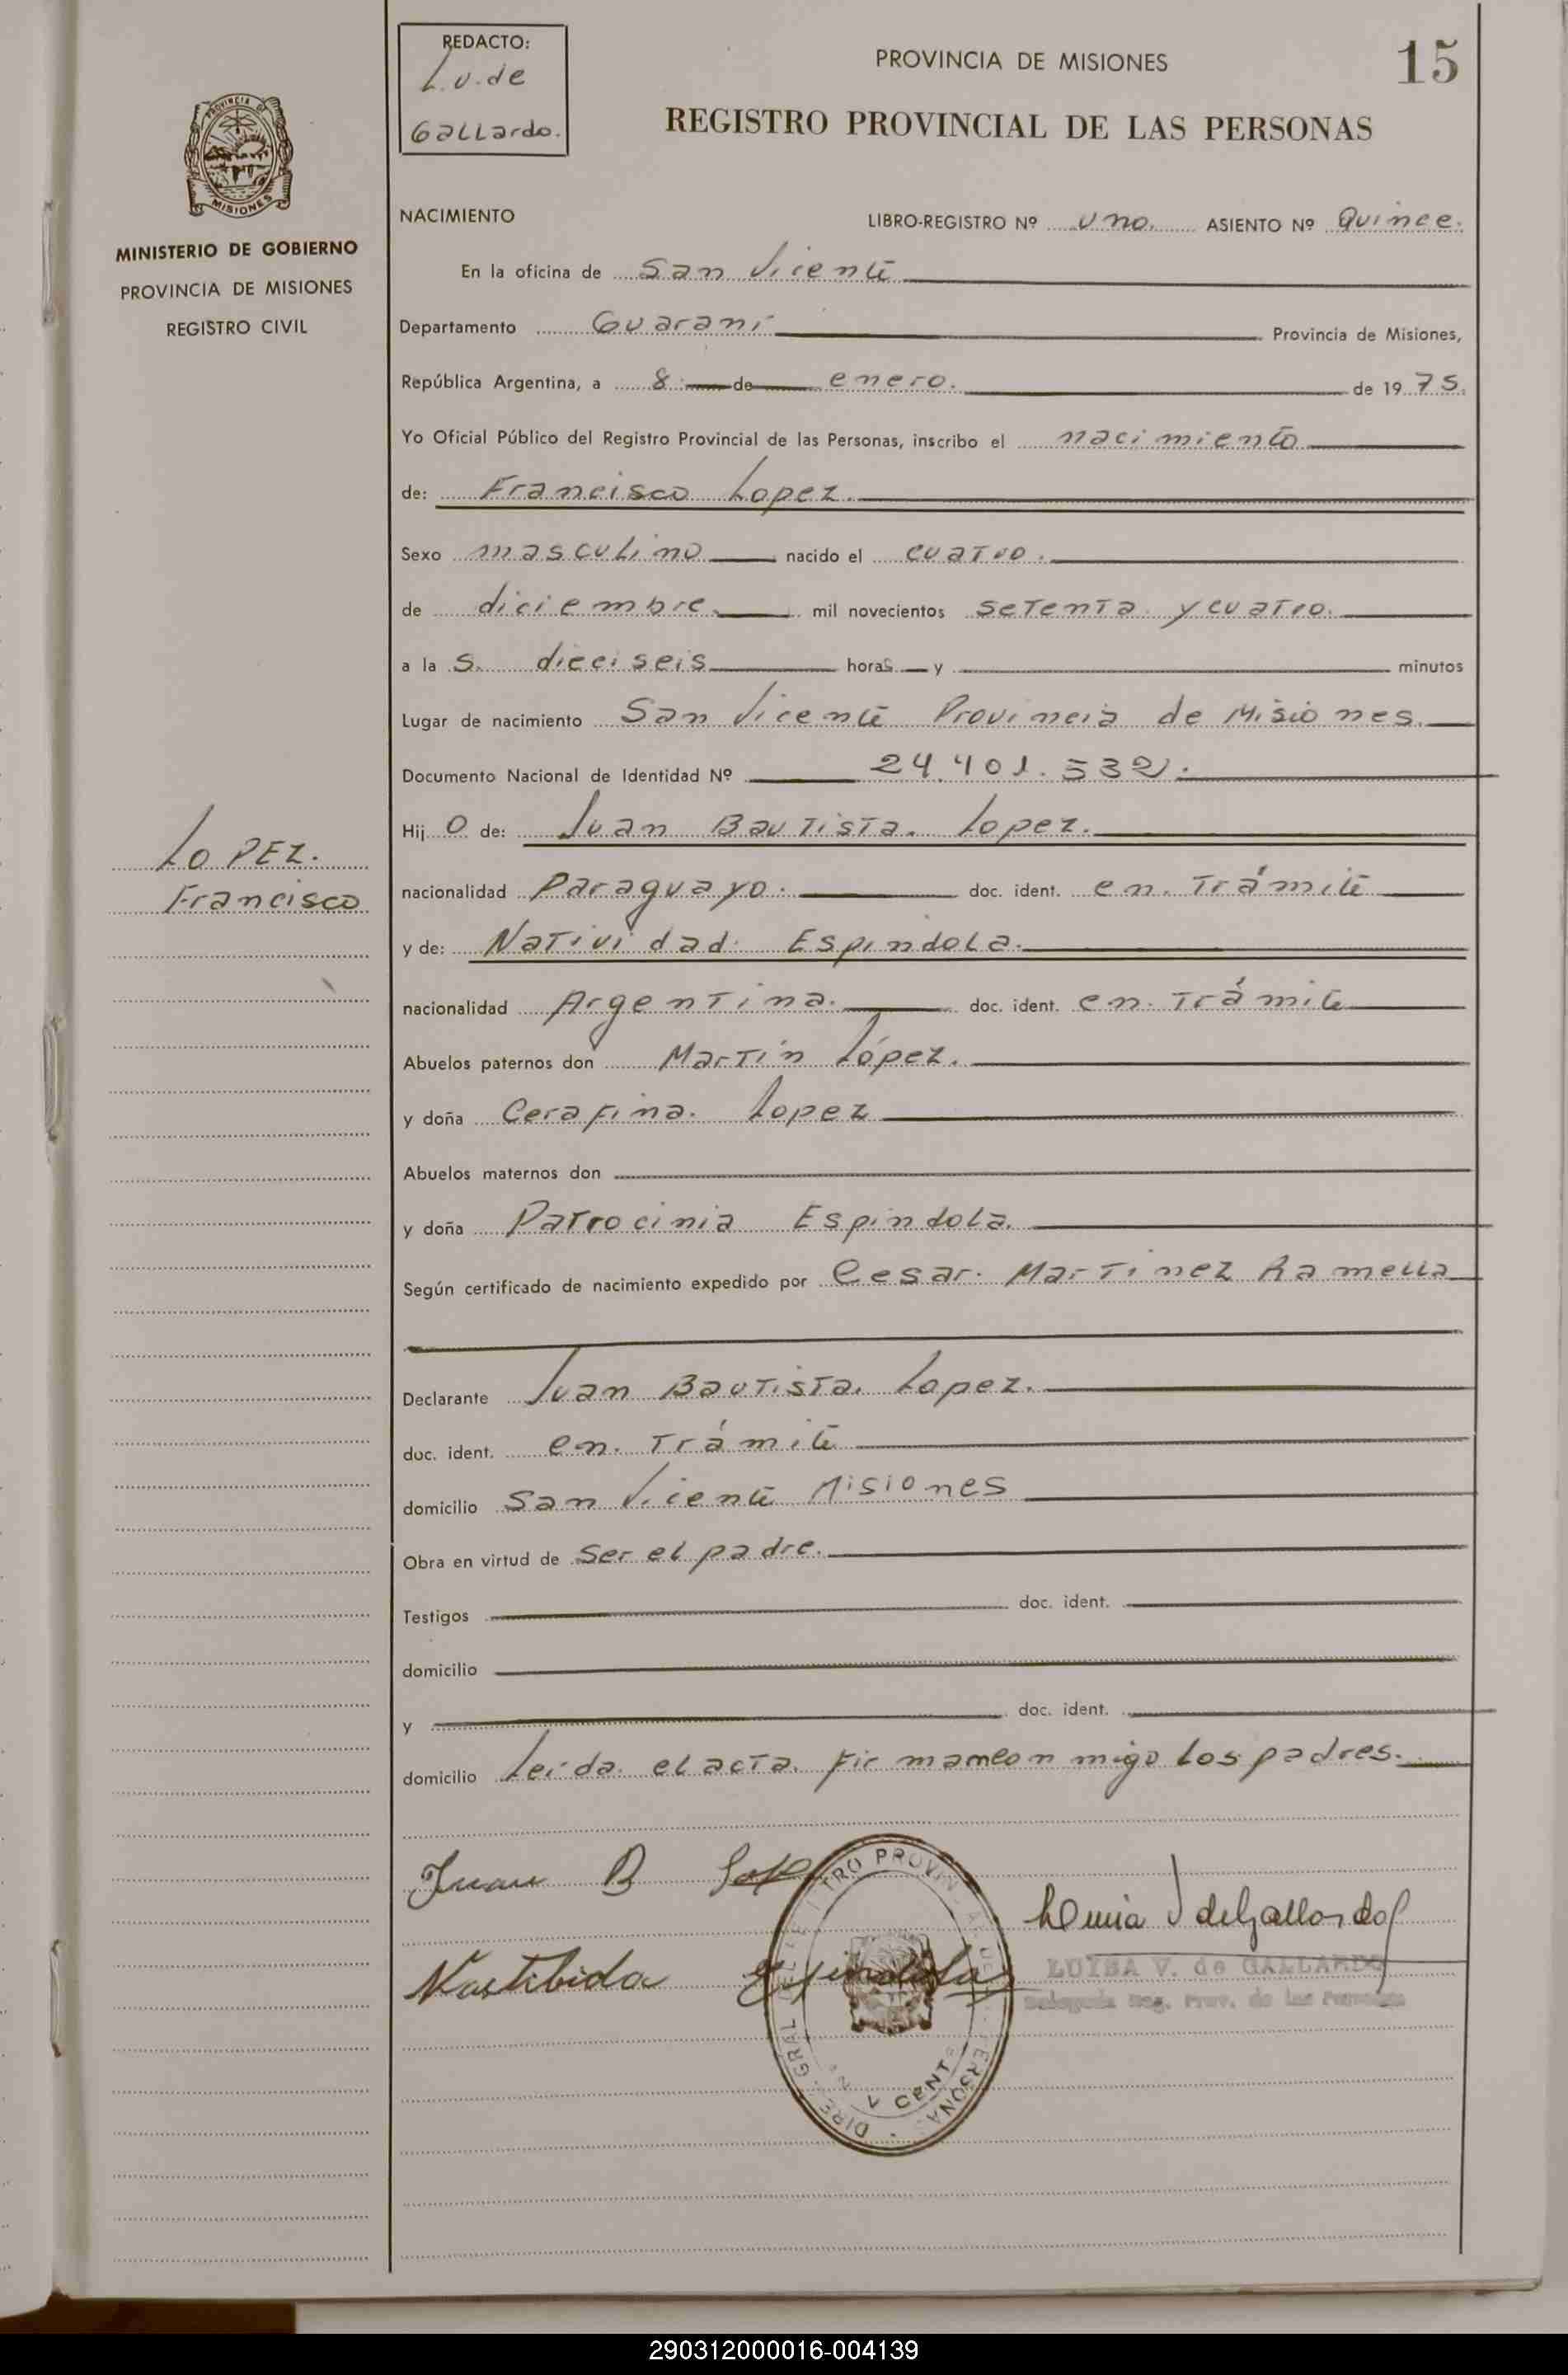 REDACTO:
L.v.de
Gallardo.
PROVINCIA DE MISIONES
15
REGISTRO PROVINCIAL DE LAS PERSONAS
PROVINCIA DE
MISIONES
MINISTERIO DE GOBIERNO
PROVINCIA DE MISIONES
REGISTRO CIVIL
NACIMIENTO LIBRO-REGISTRO Nº uno. ASIENTO Nº Quince.
En la oficina de San Vicente
Departamento Guaraní Provincia de Misiones,
República Argentina, a 8 de enero. de 1975.
Yo Oficial Público del Registro Provincial de las Personas, inscribo el nacimiento
de: Francisco Lopez.
Sexo masculino nacido el cuatro.
de diciembre. mil novecientos setenta y cuatro.
a la s. dieciseis horas y minutos
Lugar de nacimiento San Vicente Provincia de Misiones.
Documento Nacional de Identidad Nº 24.401.532.
Hij o de: Juan Bautista. Lopez.
LOPEZ.
Francisco
nacionalidad Paraguayo. doc. ident. en. Trámite
y de: Natividad. Espindola.
nacionalidad Argentina. doc. ident. en. Trámite
Abuelos paternos don Martín López.
y doña Cerafina. Lopez
Abuelos maternos don
y doña Patrocinia Espindola.
Según certificado de nacimiento expedido por Cesar. Martinez Ramella
Declarante Juan Bautista. Lopez.
doc. ident. en. Trámite
domicilio San Vicente Misiones
Obra en virtud de ser el padre.
Testigos doc. ident.
domicilio
y doc. ident.
domicilio Leída. el acta. firman conmigo los padres.
Juan B Lop
Nastibida Espindola
LUISA V. de GALLARDO
Delegada Reg. Prov. de las Personas
290312000016-004139